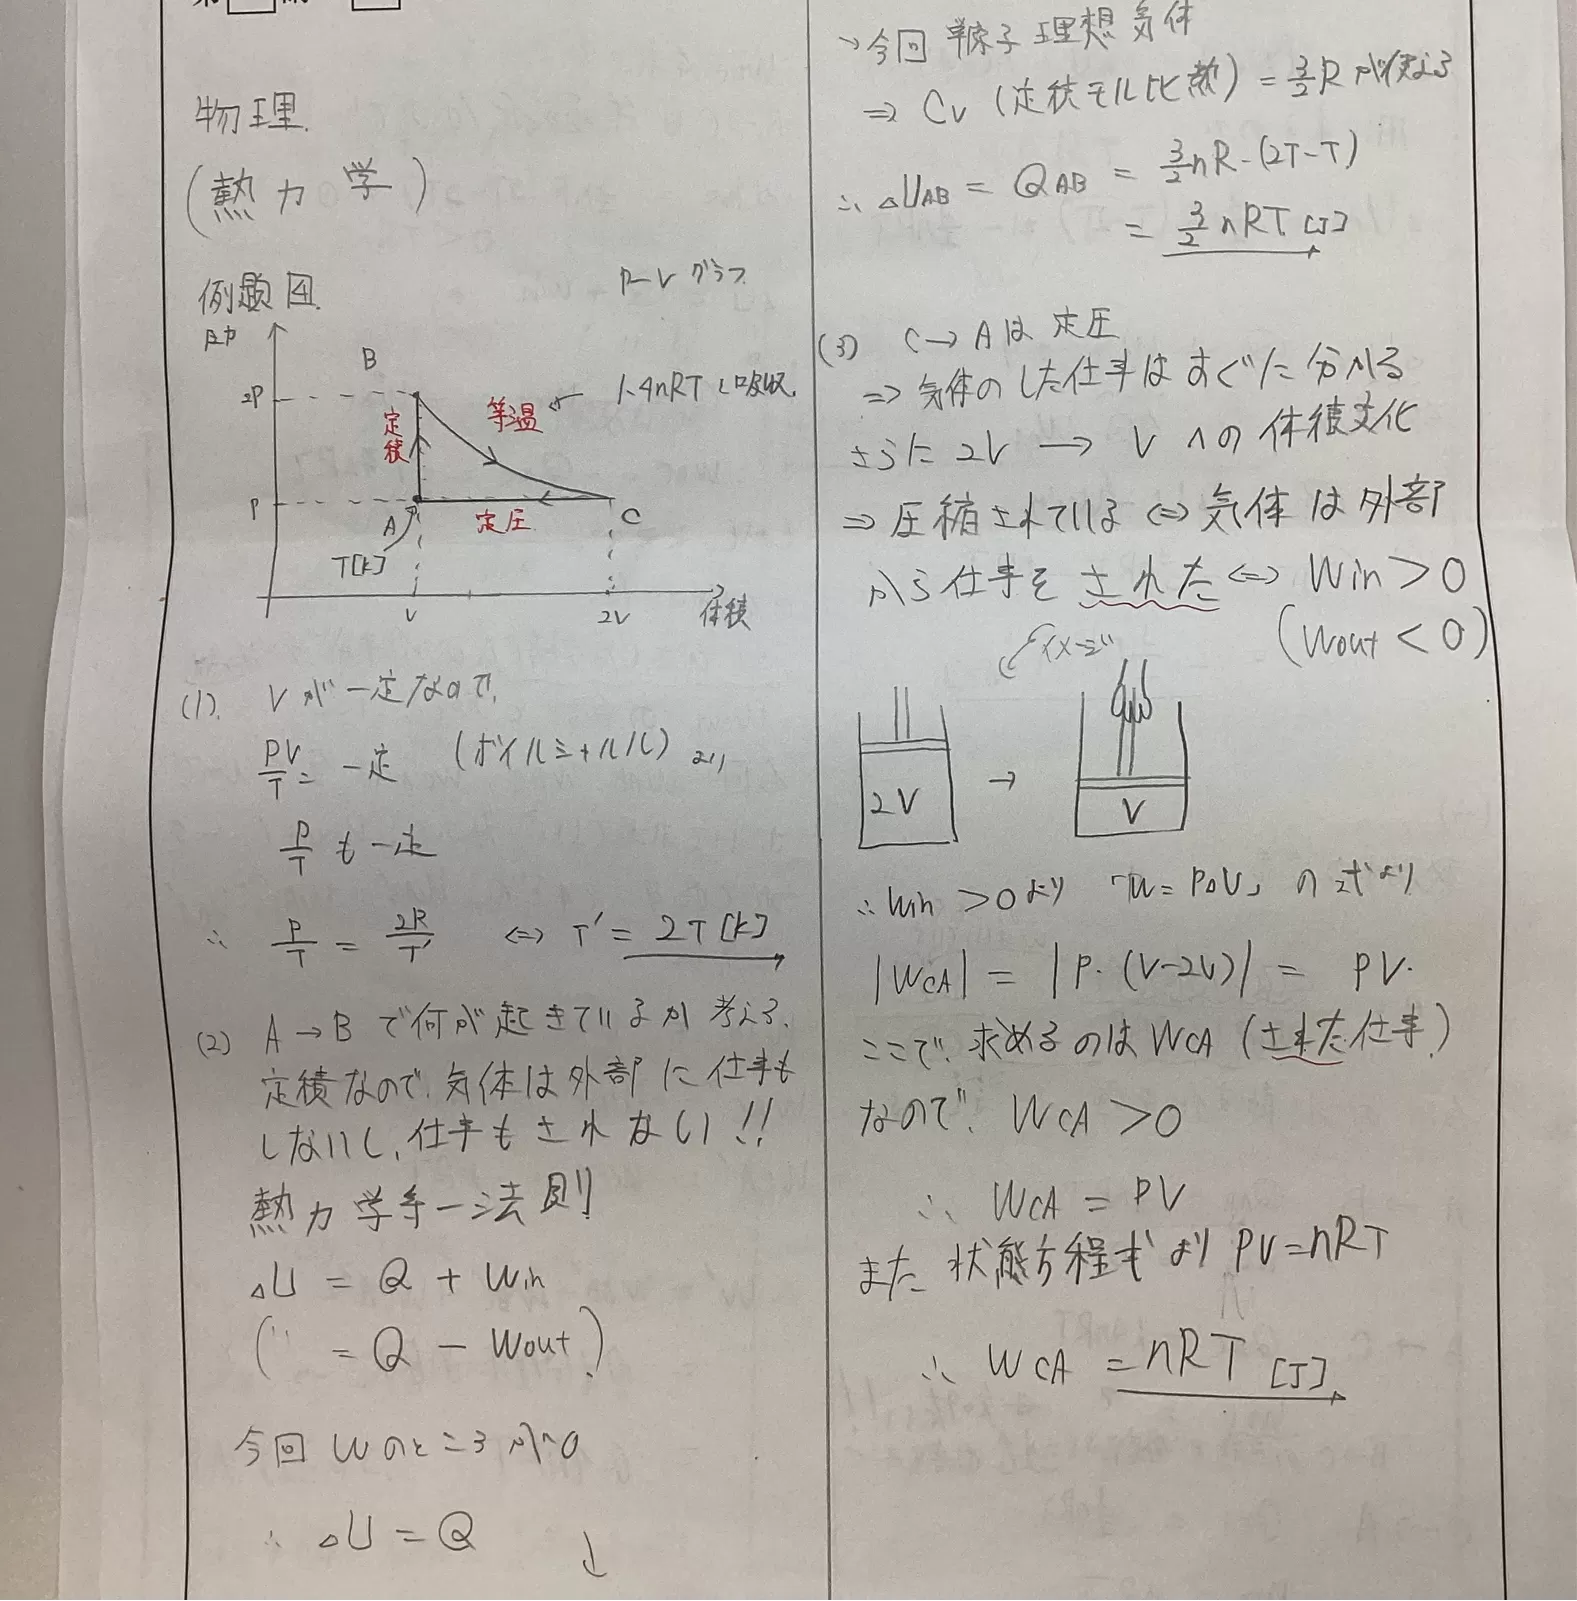 物理.
(熱力学)
例題図.
P-Vグラフ
圧力
2P
B
定積
等温
1.4nRT 吸収.
P
A
定圧
C
T[K]
V
2V
体積
(1). Vが一定なので,
PV/T = 一定 (ボイルシャルル) より
P/T も一定
∴ P/T = 2P/T' ⇔ T' = 2T[K]
(2) A→Bで何が起きているか考える.
定積なので、気体は外部に仕事も
しないし、仕事もされない!!
熱力学第一法則
△U = Q + Win
(〃 = Q - Wout)
今回Wのところが0
∴ △U = Q ↓
→今回 単原子理想気体
⇒ Cv (定積モル比熱) = 3/2 R が使える
∴ △UAB = QAB = 3/2 nR・(2T-T)
= 3/2 nRT [J]
(3) C→Aは定圧
⇒ 気体のした仕事はすぐに分かる
さらに 2V → V への体積変化
⇒ 圧縮されている ⇔ 気体は外部
から仕事をされた ⇔ Win > 0
(Wout < 0)
イメージ
2V
→
V
∴ Win > 0 より 「W = P△V」の式より
|WCA| = |P・(V-2V)| = PV.
ここで、求めるのは WCA (された仕事)
なので、WCA > 0
∴ WCA = PV
また 状態方程式より PV = nRT
∴ WCA = nRT [J]